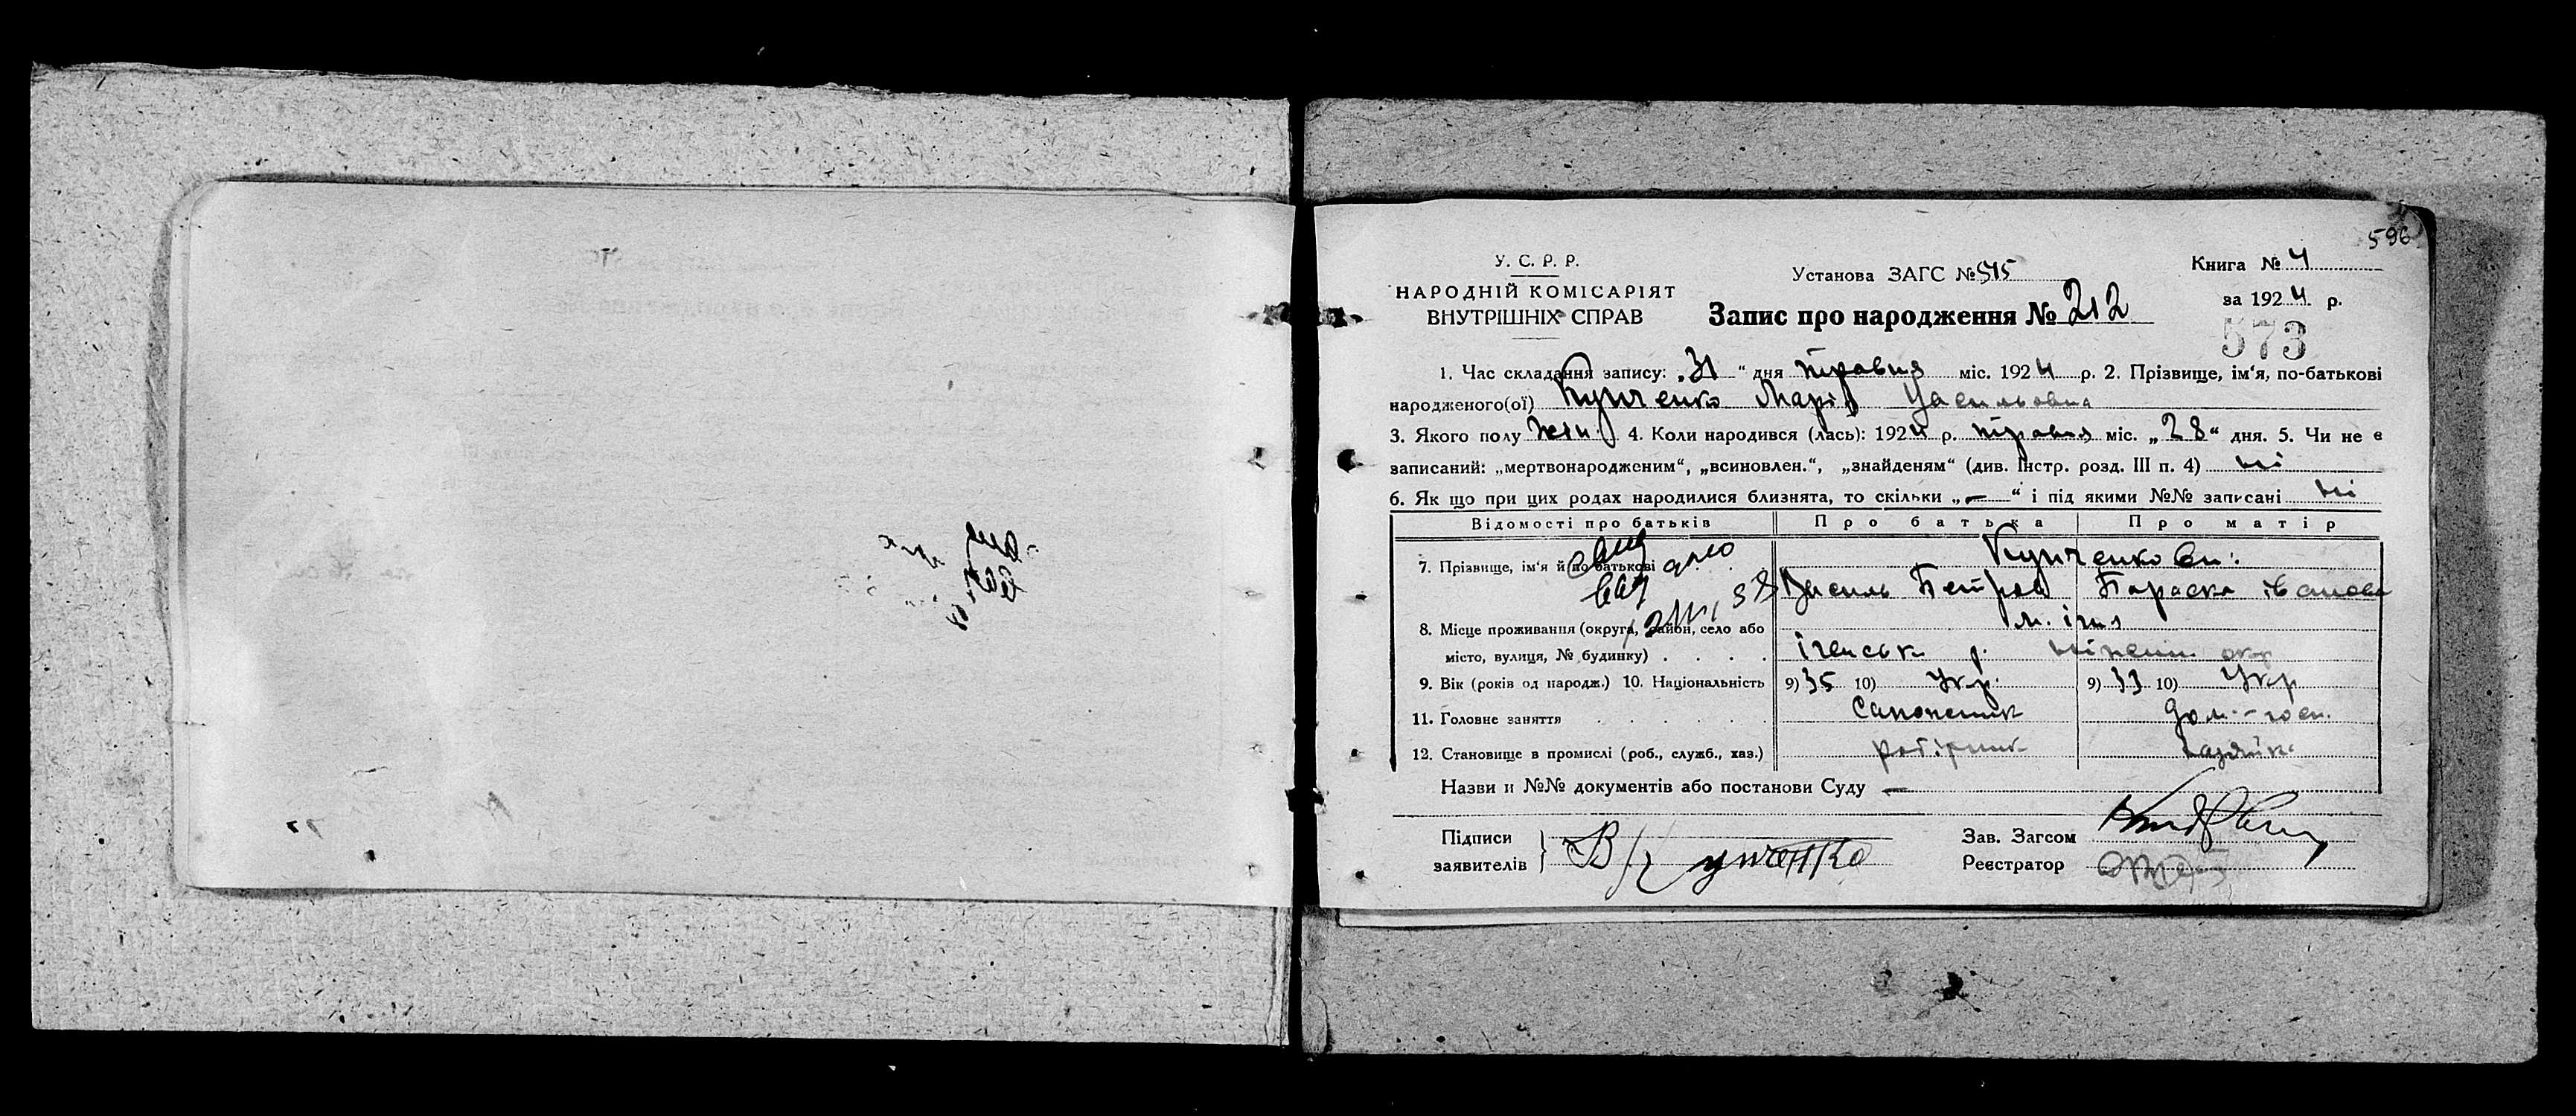 596
У. С. Р. Р.
НАРОДНІЙ КОМІСАРІЯТ
ВНУТРІШНІХ СПРАВ
Установа ЗАГС № 545
Книга № 4
за 1924 р.
Запис про народження № 212
573
1. Час складання запису: „31“ дня травня міс. 1924 р. 2. Прізвище, ім‘я, по-батькові
народженого(ої) Купченко Марія Василовна
3. Якого полу жін. 4. Коли народився (лась): 1924 р. травня міс. „28“ дня. 5. Чи не є
записаний: „мертвонародженим“, „всиновлен.“, „знайденям“ (див. Інстр. розд. III п. 4) ні
6. Як що при цих родах народилися близнята, то скільки „—“ і під якими №№ записані ні
Відомості про батьків Про батька Про матір
7. Прізвище, ім‘я й по батькові Купченкови:
Василь Петров Параска Іванова
8. Місце проживання (округа, район, село або м. Ічня
місто, вулиця, № будинку) . . . . Іченськ р. Ніженш окр
9. Вік (років од народж.) 10. Національність 9) 35 10) Укр. 9) 33 10) Укр
11. Головне заняття . . . . . . Сапожник дом.-госп.
12. Становище в промислі (роб., служб., хаз.) робітник хазяйка
Назви и №№ документів або постанови Суду —
Підписи
заявителів } В Купченко
Зав. Загсом
Реєстратор